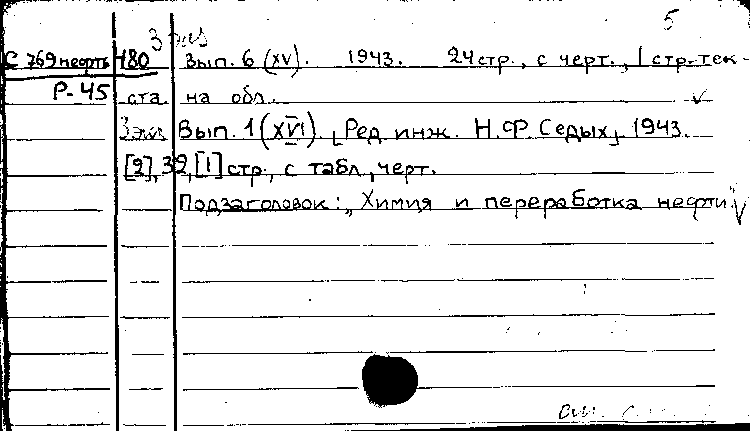 5
3 экз
С 769 нефть 480 Вып. 6 (XV). 1943. 24 стр., с черт., 1 стр. тек-
Р-45 ста на обл.
3 экз Вып. 1 (XVI). [Ред. инж. Н.Ф. Седых], 1943.
[2], 39, [1] стр., с табл., черт.
Подзаголовок: „Химия и переработка нефти"